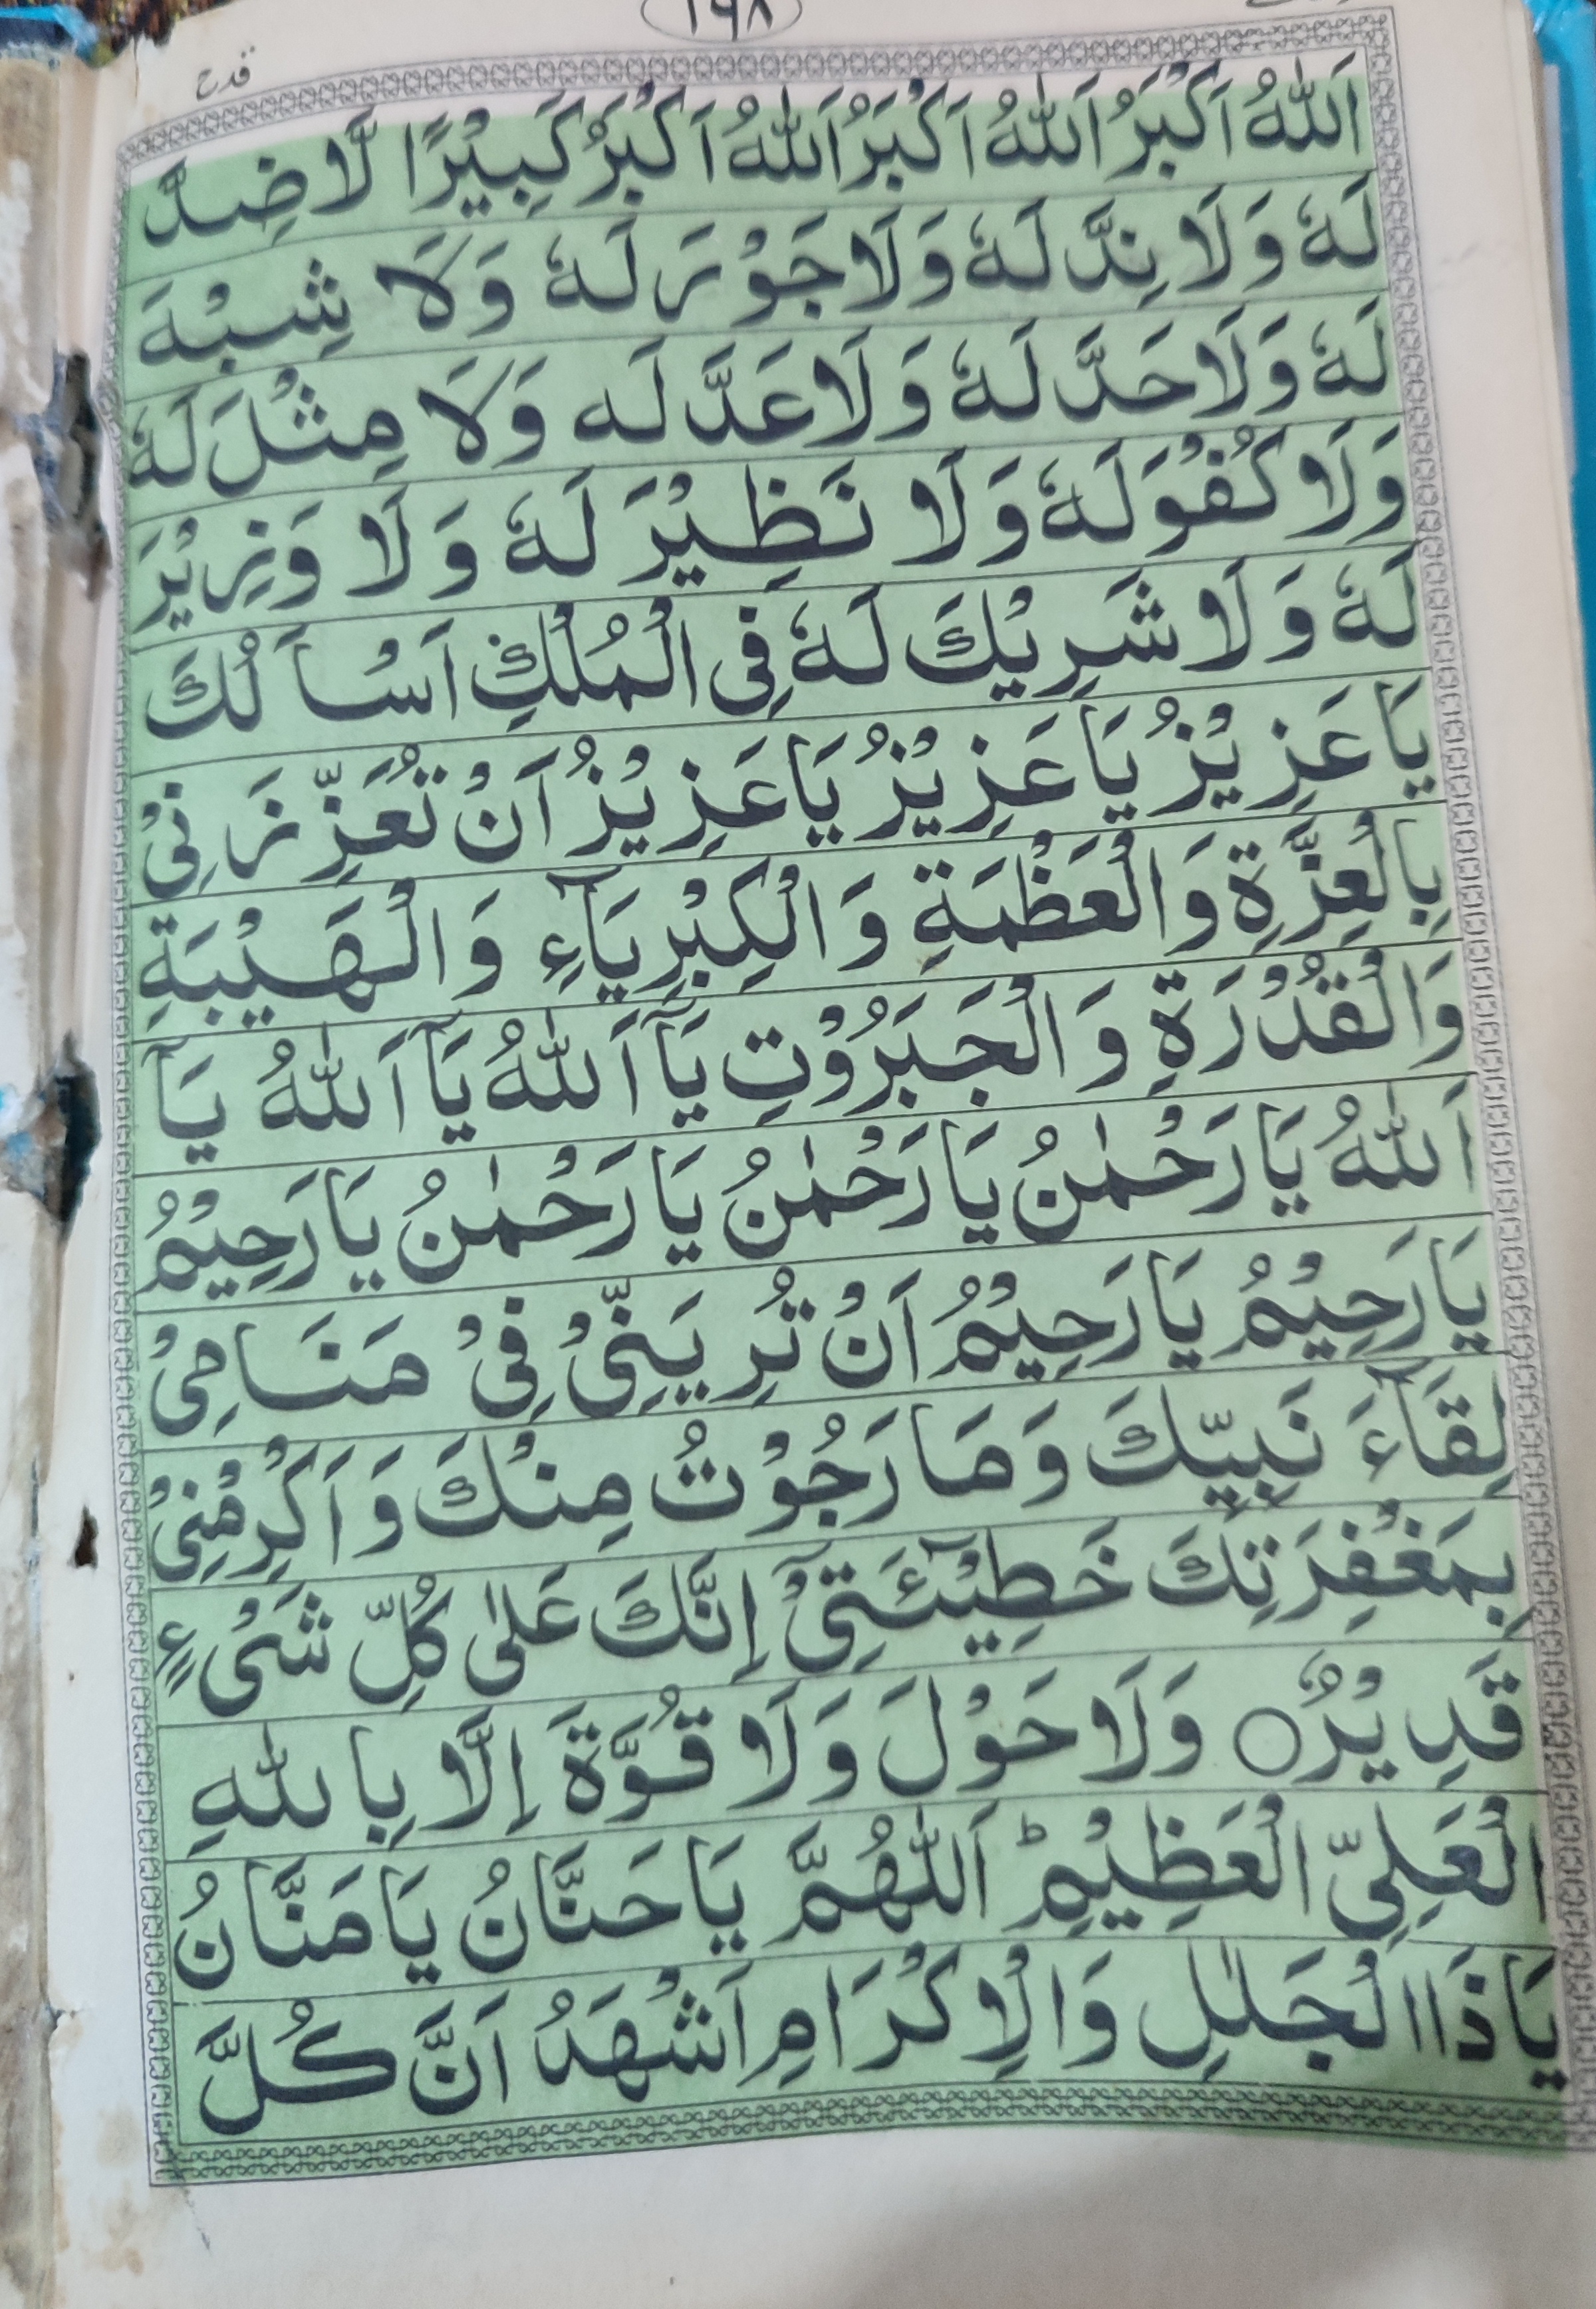 ١٩٨
قدح
اَللّٰهُ اَكْبَرُ اَللّٰهُ اَكْبَرُ اَللّٰهُ اَكْبَرُ كَبِيْرًا لَّا ضِدَّ
لَهٗ وَلَا نِدَّ لَهٗ وَلَا جَوْرَ لَهٗ وَلَا شِبْهَ
لَهٗ وَلَا حَدَّ لَهٗ وَلَا عَدَّ لَه وَلَا مِثْلَ لَهٗ
وَلَا كُفْوَ لَهٗ وَلَا نَظِيْرَ لَهٗ وَلَا وَزِيْرَ
لَهٗ وَلَا شَرِيْكَ لَهٗ فِى الْمُلْكِ اَسْاَلُكَ
يَا عَزِيْزُ يَا عَزِيْزُ يَا عَزِيْزُ اَنْ تُعَزِّزَنِىْ
بِالْعِزَّةِ وَالْعَظْمَةِ وَالْكِبْرِيَآءِ وَالْهَيْبَةِ
وَالْقُدْرَةِ وَالْجَبَرُوْتِ يَآ اَللّٰهُ يَآ اَللّٰهُ يَآ
اَللّٰهُ يَا رَحْمٰنُ يَا رَحْمٰنُ يَا رَحْمٰنُ يَا رَحِيْمُ
يَا رَحِيْمُ يَا رَحِيْمُ اَنْ تُرِيَنِّىْ فِىْ مَنَامِىْ
لِقَآءَ نَبِيِّكَ وَمَا رَجُوْتُ مِنْكَ وَاَكْرِمْنِىْ
بِمَغْفِرَتِكَ خَطِيْٓئَتِىْٓ اِنَّكَ عَلٰى كُلِّ شَىْءٍ
قَدِيْرٌ۝ وَلَا حَوْلَ وَلَا قُوَّةَ اِلَّا بِاللّٰهِ
الْعَلِىِّ الْعَظِيْمِؕ اَللّٰهُمَّ يَا حَنَّانُ يَا مَنَّانُ
يَا ذَا الْجَلٰلِ وَالْاِكْرَامِ اَشْهَدُ اَنَّ كُلَّ